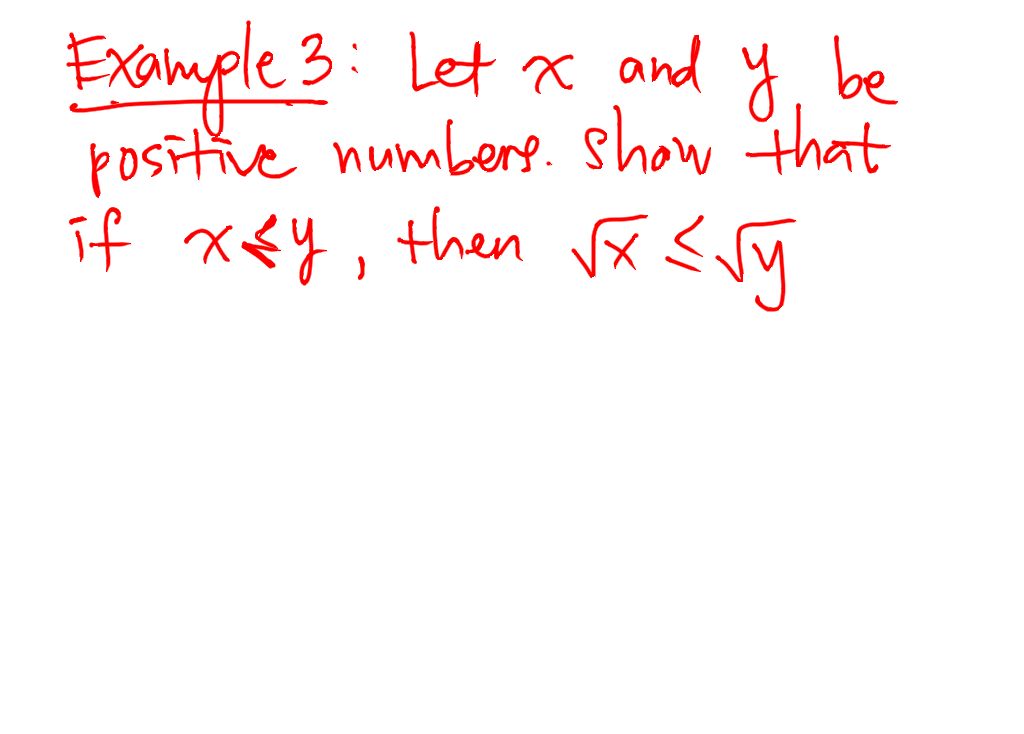 Example 3: Let x and y be
positive numbers. Show that
if x ≤ y, then √x ≤ √y